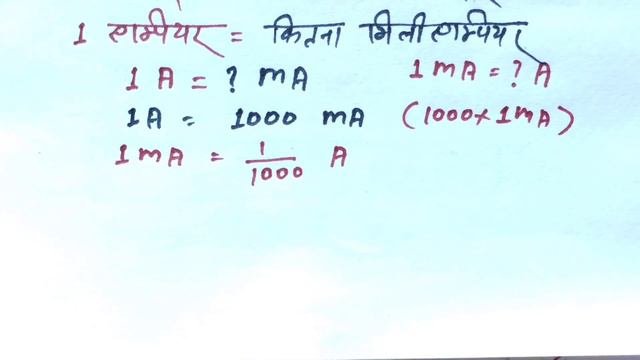 1 एम्पियर = कितना मिली एम्पियर
1 A = ? mA 1 mA = ? A
1A = 1000 mA (1000 x 1 mA)
1 mA = 1/1000 A